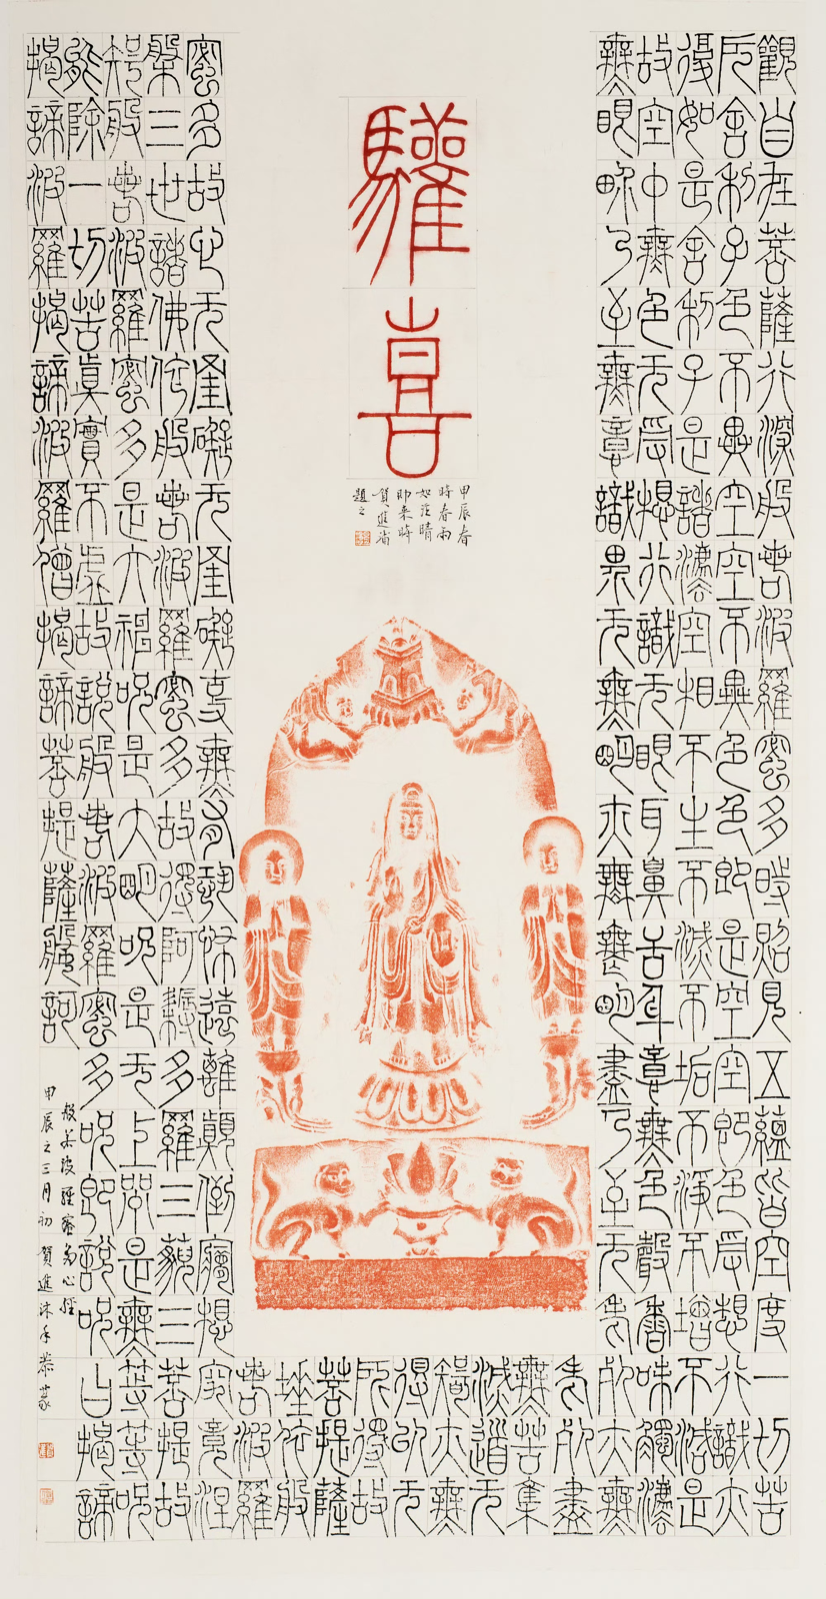 觀自在菩薩行深般若波羅蜜多時照見五蘊皆空度一切苦
厄舍利子色不異空空不異色色即是空空即色受想行識亦
復如是舍利子是諸法空相不生不滅不垢不淨不增不減是
故空中無色无受想行識无眼耳鼻舌身意無色聲香味觸法
無眼界乃至無意識界无無明亦無無明盡乃至无老死亦無
老死盡
無苦集
滅道无
智亦無
得以无
所得故
菩提薩
埵依般
若波羅
蜜多故心无罣礙无罣礙故無有恐怖遠離顛倒夢想究竟涅
槃三世諸佛依般若波羅蜜多故得阿耨多羅三藐三菩提故
知般若波羅蜜多是大神呪是大明呪是无上呪是無等等呪
能除一切苦真實不虛故說般若波羅蜜多呪即說呪曰揭諦
揭諦波羅揭諦波羅僧揭諦菩提薩婆訶
般若波羅蜜多心經
甲辰之三月初賀進沐手恭篆
驩喜
甲辰春
時春雨
如注晴
即来時
賀進省
題之